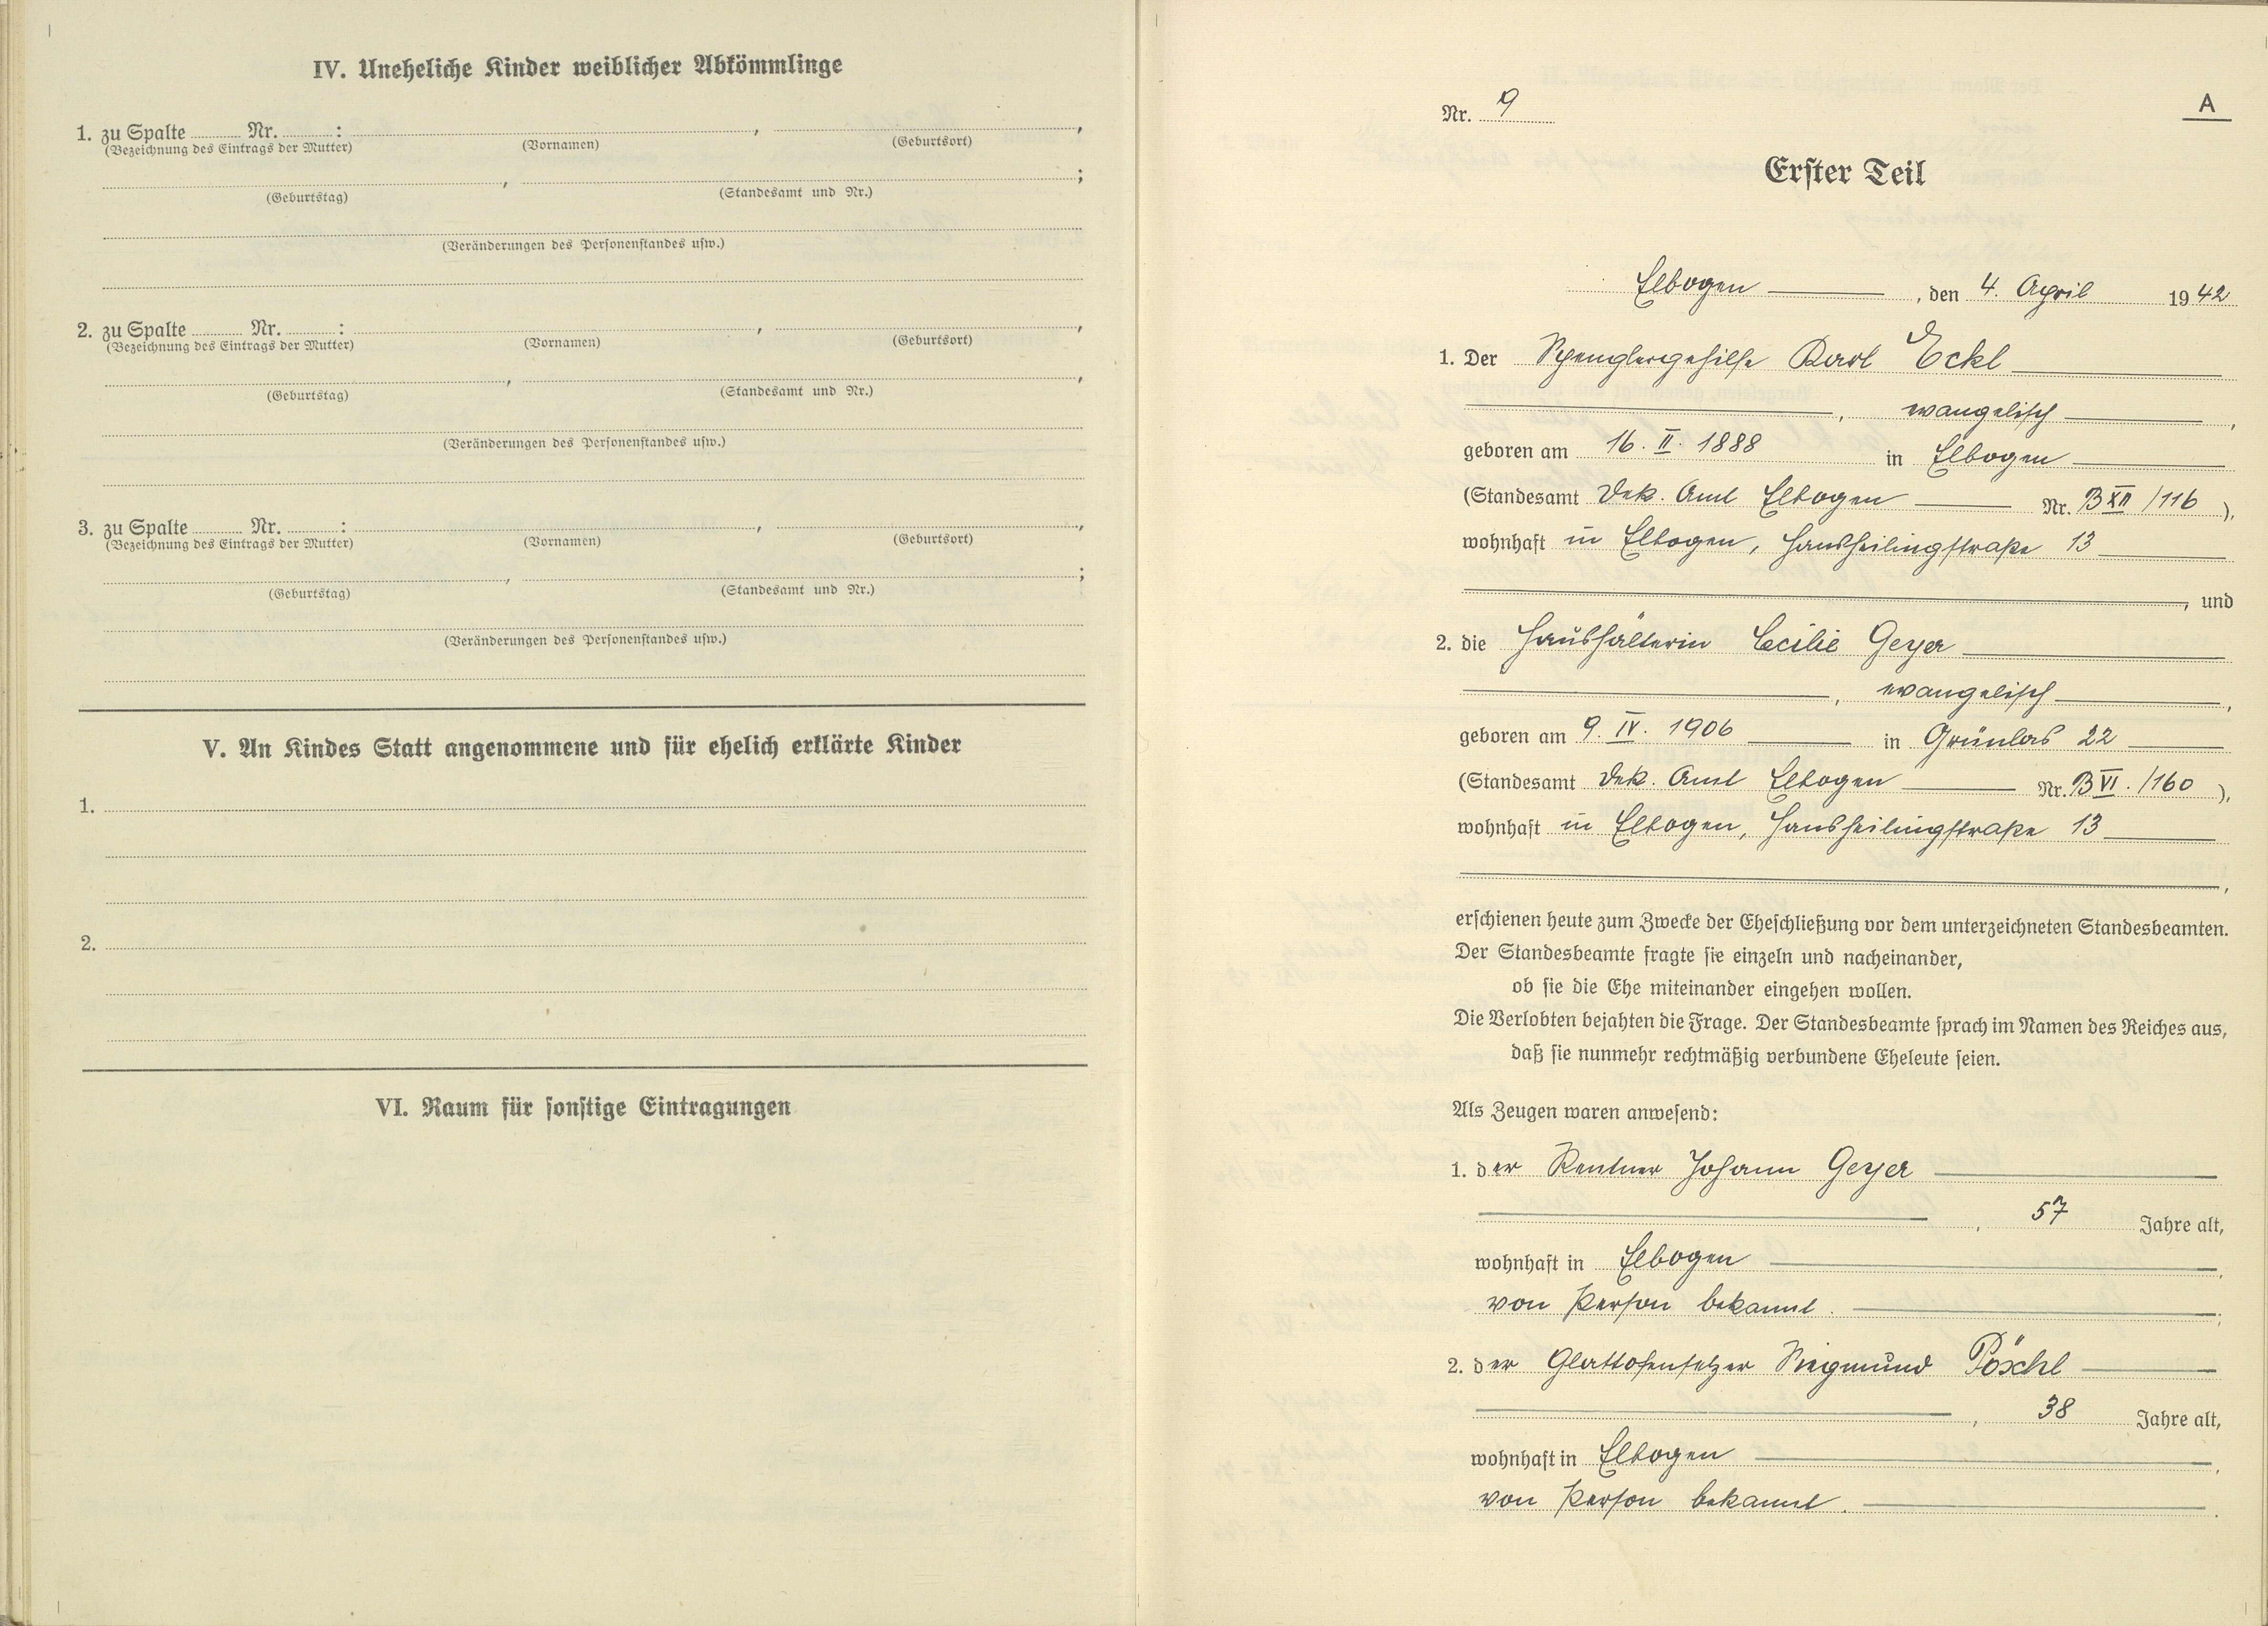 IV. Uneheliche Kinder weiblicher Abkömmlinge
1. zu Spalte ........ Nr. ........ : , ,
(Bezeichnung des Eintrags der Mutter) (Vornamen) (Geburtsort)
, ;
(Geburtstag) (Standesamt und Nr.)
(Veränderungen des Personenstandes usw.)
2. zu Spalte ........ Nr. ........ : , ,
(Bezeichnung des Eintrags der Mutter) (Vornamen) (Geburtsort)
, ,
(Geburtstag) (Standesamt und Nr.)
(Veränderungen des Personenstandes usw.)
3. zu Spalte ........ Nr. ........ : , ,
(Bezeichnung des Eintrags der Mutter) (Vornamen) (Geburtsort)
, ;
(Geburtstag) (Standesamt und Nr.)
(Veränderungen des Personenstandes usw.)
V. An Kindes Statt angenommene und für ehelich erklärte Kinder
1.
2.
VI. Raum für sonstige Eintragungen
A
Nr. 9
Erster Teil
Elbogen , den 4. April 1942
1. Der Spenglergehilfe Karl Eckl
, evangelisch ,
geboren am 16. II. 1888 in Elbogen
(Standesamt Dek. Amt Elbogen Nr. B XII /116 ),
wohnhaft in Elbogen, Hansheilingstraße 13
, und
2. die Haushälterin Cecilie Geyer
, evangelisch ,
geboren am 9. IV. 1906 in Grünlas 22
(Standesamt Dek. Amt Elbogen Nr. B VI. /160 ),
wohnhaft in Elbogen, Hansheilingstraße 13
,
erschienen heute zum Zwecke der Eheschließung vor dem unterzeichneten Standesbeamten.
Der Standesbeamte fragte sie einzeln und nacheinander,
ob sie die Ehe miteinander eingehen wollen.
Die Verlobten bejahten die Frage. Der Standesbeamte sprach im Namen des Reiches aus,
daß sie nunmehr rechtmäßig verbundene Eheleute seien.
Als Zeugen waren anwesend:
1. der Rentner Johann Geyer
, 57 Jahre alt,
wohnhaft in Elbogen ,
von Person bekannt. ;
2. der Glattofensetzer Siegmund Pöschl
, 38 Jahre alt,
wohnhaft in Elbogen ,
von Person bekannt. .